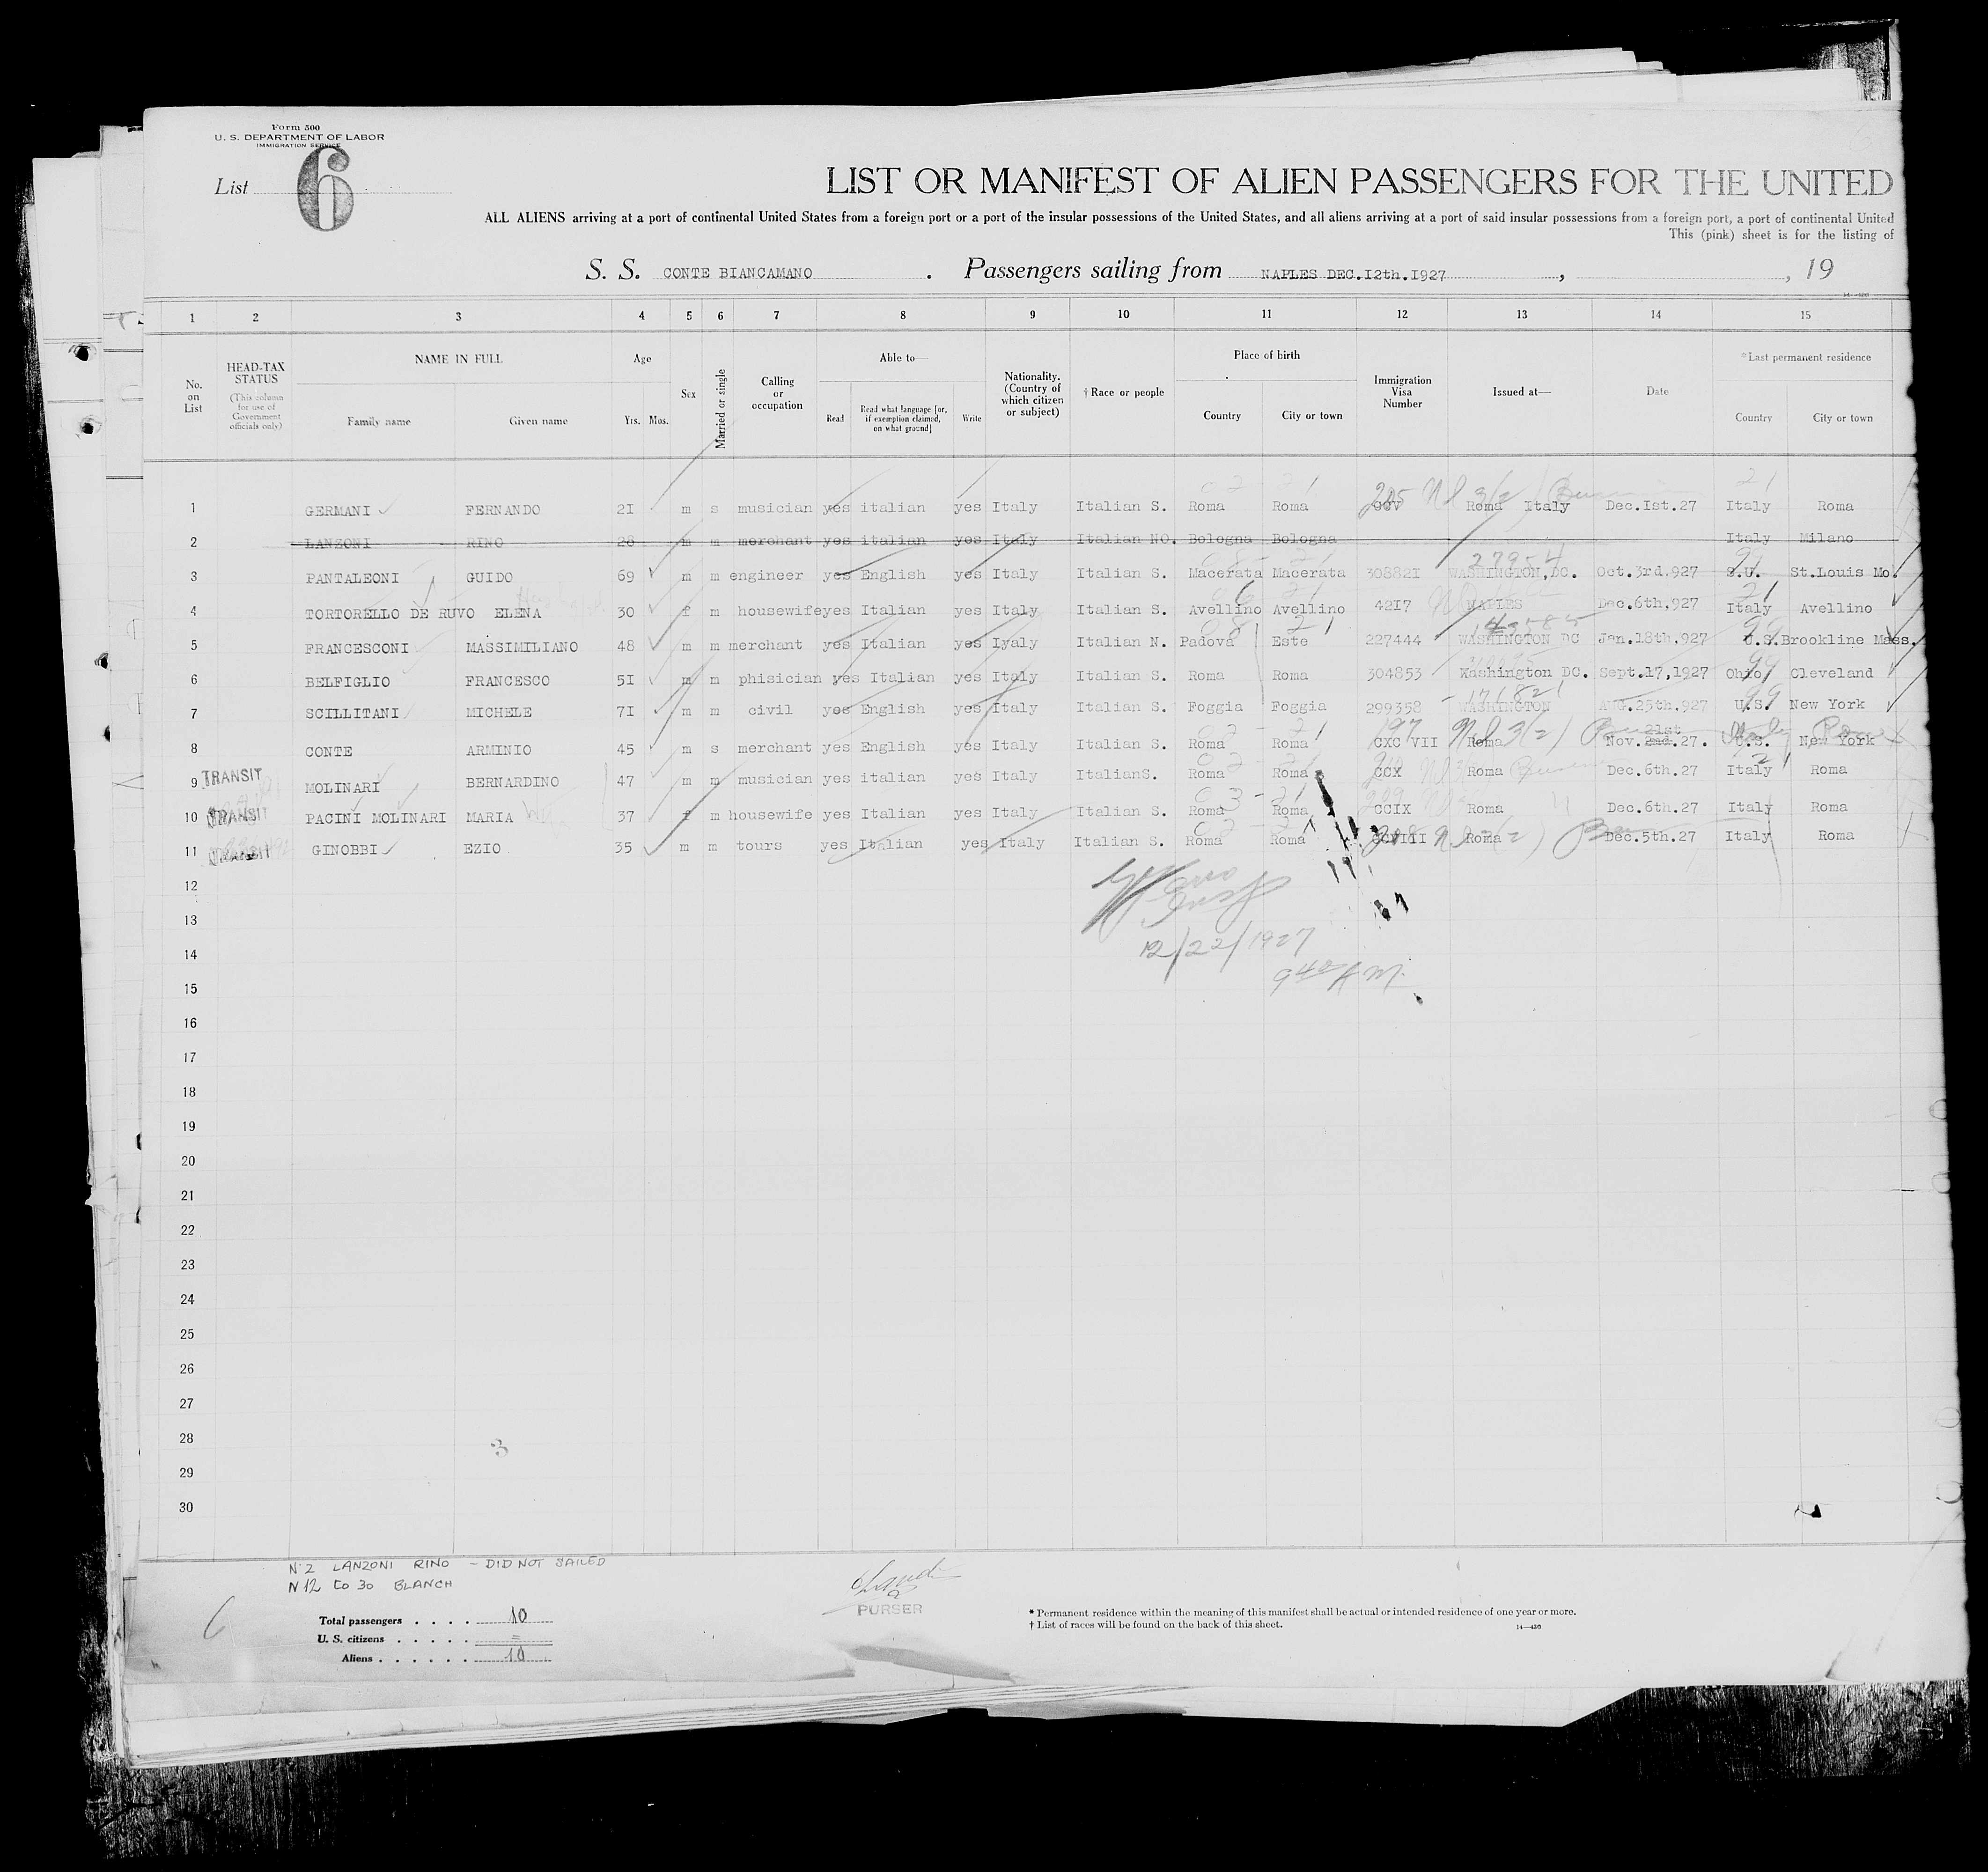 Form 500
U. S. DEPARTMENT OF LABOR
IMMIGRATION SERVICE
List 6
LIST OR MANIFEST OF ALIEN PASSENGERS FOR THE UNITED
ALL ALIENS arriving at a port of continental United States from a foreign port or a port of the insular possessions of the United States, and all aliens arriving at a port of said insular possessions from a foreign port, a port of continental United
This (pink) sheet is for the listing of
S. S. CONTE BIANCAMANO . Passengers sailing from NAPLES DEC.I2th.I927 , , 19
1 2 3 4 5 6 7 8 9 10 11 12 13 14 15
No. on List
HEAD-TAX STATUS (This column for use of Government officials only)
NAME IN FULL
Family name Given name
Age
Yrs. Mos.
Sex
Married or single
Calling or occupation
Able to—
Read Read what language [or, if exemption claimed, on what ground] Write
Nationality. (Country of which citizen or subject)
† Race or people
Place of birth
Country City or town
Immigration Visa Number
Issued at—
Date
* Last permanent residence
Country City or town
1 GERMANI FERNANDO 2I m s musician yes italian yes Italy Italian S. Roma Roma 205 CCV Roma Italy Dec.Ist.27 Italy Roma
2 LANZONI RINO 28 m m merchant yes italian yes Italy Italian NO. Bologna Bologna Italy Milano
3 PANTALEONI GUIDO 69 m m engineer yes English yes Italy Italian S. Macerata Macerata 30882I WASHINGTON,DC. Oct.3rd.927 S.U. St.Louis Mo.
4 TORTORELLO DE RUVO ELENA 30 f m housewife yes Italian yes Italy Italian S. Avellino Avellino 42I7 NAPLES Dec.6th,927 Italy Avellino
5 FRANCESCONI MASSIMILIANO 48 m m merchant yes Italian yes Iyaly Italian N. Padova Este 227444 WASHINGTON DC Jan.I8th.927 U.S. Brookline Mass.
6 BELFIGLIO FRANCESCO 5I m m phisician yes Italian yes Italy Italian S. Roma Roma 304853 Washington DC. Sept.I7,I927 Ohio Cleveland
7 SCILLITANI MICHELE 7I m m civil yes English yes Italy Italian S. Foggia Foggia 299358 WASHINGTON AUG.25th.927 U.S. New York
8 CONTE ARMINIO 45 m s merchant yes English yes Italy Italian S. Roma Roma 197 CXC VII Roma Nov. 2nd 21st .27. U.S. New York Italy Rome
9 TRANSIT MOLINARI BERNARDINO 47 m m musician yes italian yes Italy ItalianS. Roma Roma CCX Roma Dec.6th.27 Italy Roma
10 TRANSIT PACINI MOLINARI MARIA 37 f m housewife yes Italian yes Italy Italian S. Roma Roma CCIX Roma Dec.6th.27 Italy Roma
11 TRANSIT GINOBBI EZIO 35 m m tours yes Italian yes Italy Italian S. Roma Roma CCVIII Roma Dec.5th.27 Italy Roma
12
13
12/22/1927
14
15
9 40 A M.
16
17
18
19
20
21
22
23
24
25
26
27
28
3
29
30
N. 2 LANZONI RINO - DID NOT SAILED
N 12 to 30 BLANCH
6
Total passengers . . . . 10
U. S. citizens . . . . . =
Aliens . . . . . . 10
PURSER
* Permanent residence within the meaning of this manifest shall be actual or intended residence of one year or more.
† List of races will be found on the back of this sheet.
14—430